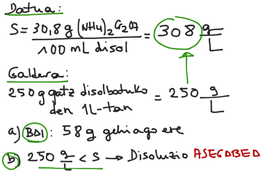 Datua:
S = 30,8 g (NH4)2C2O4 / 100 mL disol = 308 g/L
Galdera:
250 g gatz disolbatuko den 1L-tan = 250 g/L
a) BAI: 58 g gehiago ere
b) 250 g/L < S → Disoluzio ASEGABEA